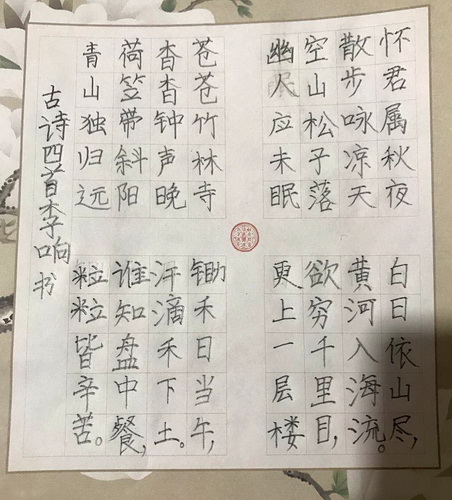 怀君属秋夜
散步咏凉天
空山松子落
幽人应未眠
苍苍竹林寺
杳杳钟声晚
荷笠带斜阳
青山独归远
白日依山尽,
黄河入海流。
欲穷千里目,
更上一层楼
锄禾日当午,
汗滴禾下土。
谁知盘中餐,
粒粒皆辛苦。
古诗四首李响书